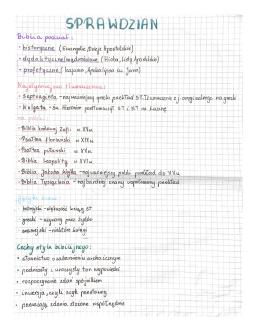 SPRAWDZIAN
Biblia podział:
- historyczne (Ewangelie, Dzieje Apostolskie)
- dydaktyczne/mądrościowe (Hioba, Listy Apostolskie)
- profetyczne (Izajasza, Apokalipsa św. Jana)
Najsłynniejsze tłumaczenia:
- Septuaginta - najważniejszy grecki przekład ST, tłumaczenie z oryginalnego na grecki
- Wulgata - św. Hieronim przetłumaczył ST i NT na łacinę
na polski:
- Biblia królowej Zofii w XVw.
- Psałterz floriański w XIVw
- Psałterz puławski w XVw
- Biblia
- Biblia Jakuba Wujka - najważniejszy polski przekład do XXw.
- Biblia Tysiąclecia - najbardziej znany współczesny przekład
Języki
hebrajski - większość ksiąg ST
grecki - używany przez Żydów
aramejski - niektóre księgi
Cechy stylu biblijnego:
• słownictwo o zabarwieniu archaicznym
• podniosły i uroczysty ton wypowiedzi
• rozpoczynanie zdań spójnikiem
• inwersja, czyli szyk przestawny
• przeważają zdania złożone współrzędnie